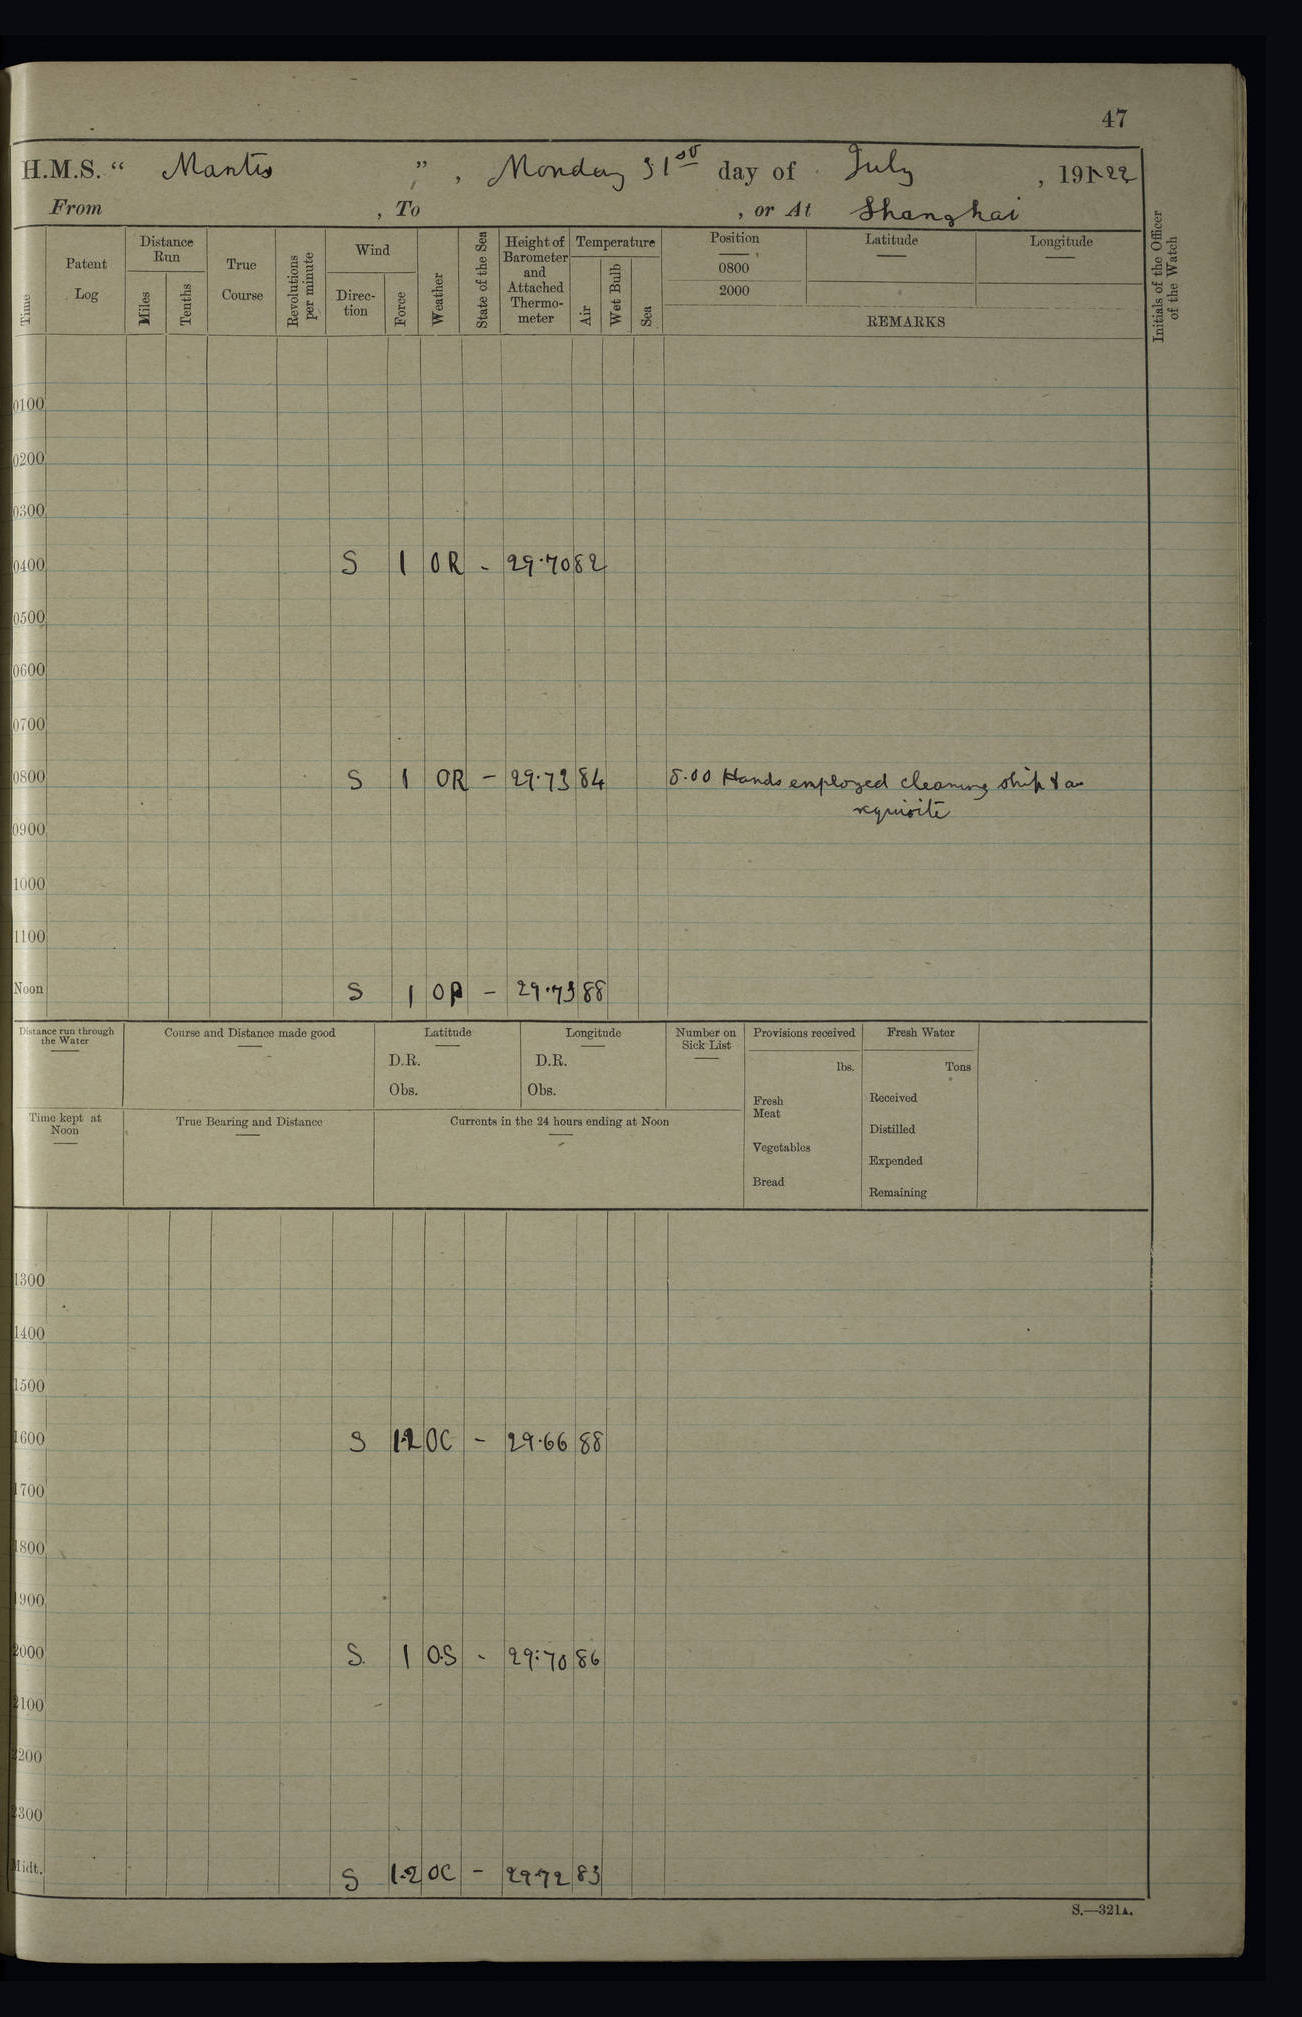 47
H.M.S. “ Mantis ” , Monday 31st day of July , 191 22
From , To , or At Shanghai
Time
Patent Log
Distance Run
Miles
Tenths
True Course
Revolutions per minute
Wind
Direction
Force
Weather
State of the Sea
Height of Barometer and Attached Thermometer
Temperature
Air
Wet Bulb
Sea
Position
0800
2000
Latitude
Longitude
REMARKS
Initials of the Officer of the Watch
0100
0200
0300
0400 S 1 OR - 29.70 82
0500
0600
0700
0800 S 1 OR - 29.73 84 8.00 Hands employed cleaning ship & as
requisite
0900
1000
1100
Noon S 1 OP - 29.73 88
Distance run through the Water
Course and Distance made good
Latitude
D.R.
Obs.
Longitude
D.R.
Obs.
Number on Sick List
Provisions received
lbs.
Fresh Meat
Vegetables
Bread
Fresh Water
Tons
Received
Distilled
Expended
Remaining
Time kept at Noon
True Bearing and Distance
Currents in the 24 hours ending at Noon
1300
1400
1500
1600 S 1.2 OC - 29.66 88
1700
1800
1900
2000 S. 1 O.S - 29.70 86
2100
2200
2300
Midt. S 1.2 OC - 29.72 83
S.—321A.